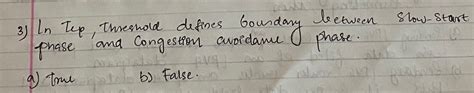 3) In Tcp, Threshold defines boundary between Slow-Start
phase and Congestion avoidance phase.
a) True b) False.